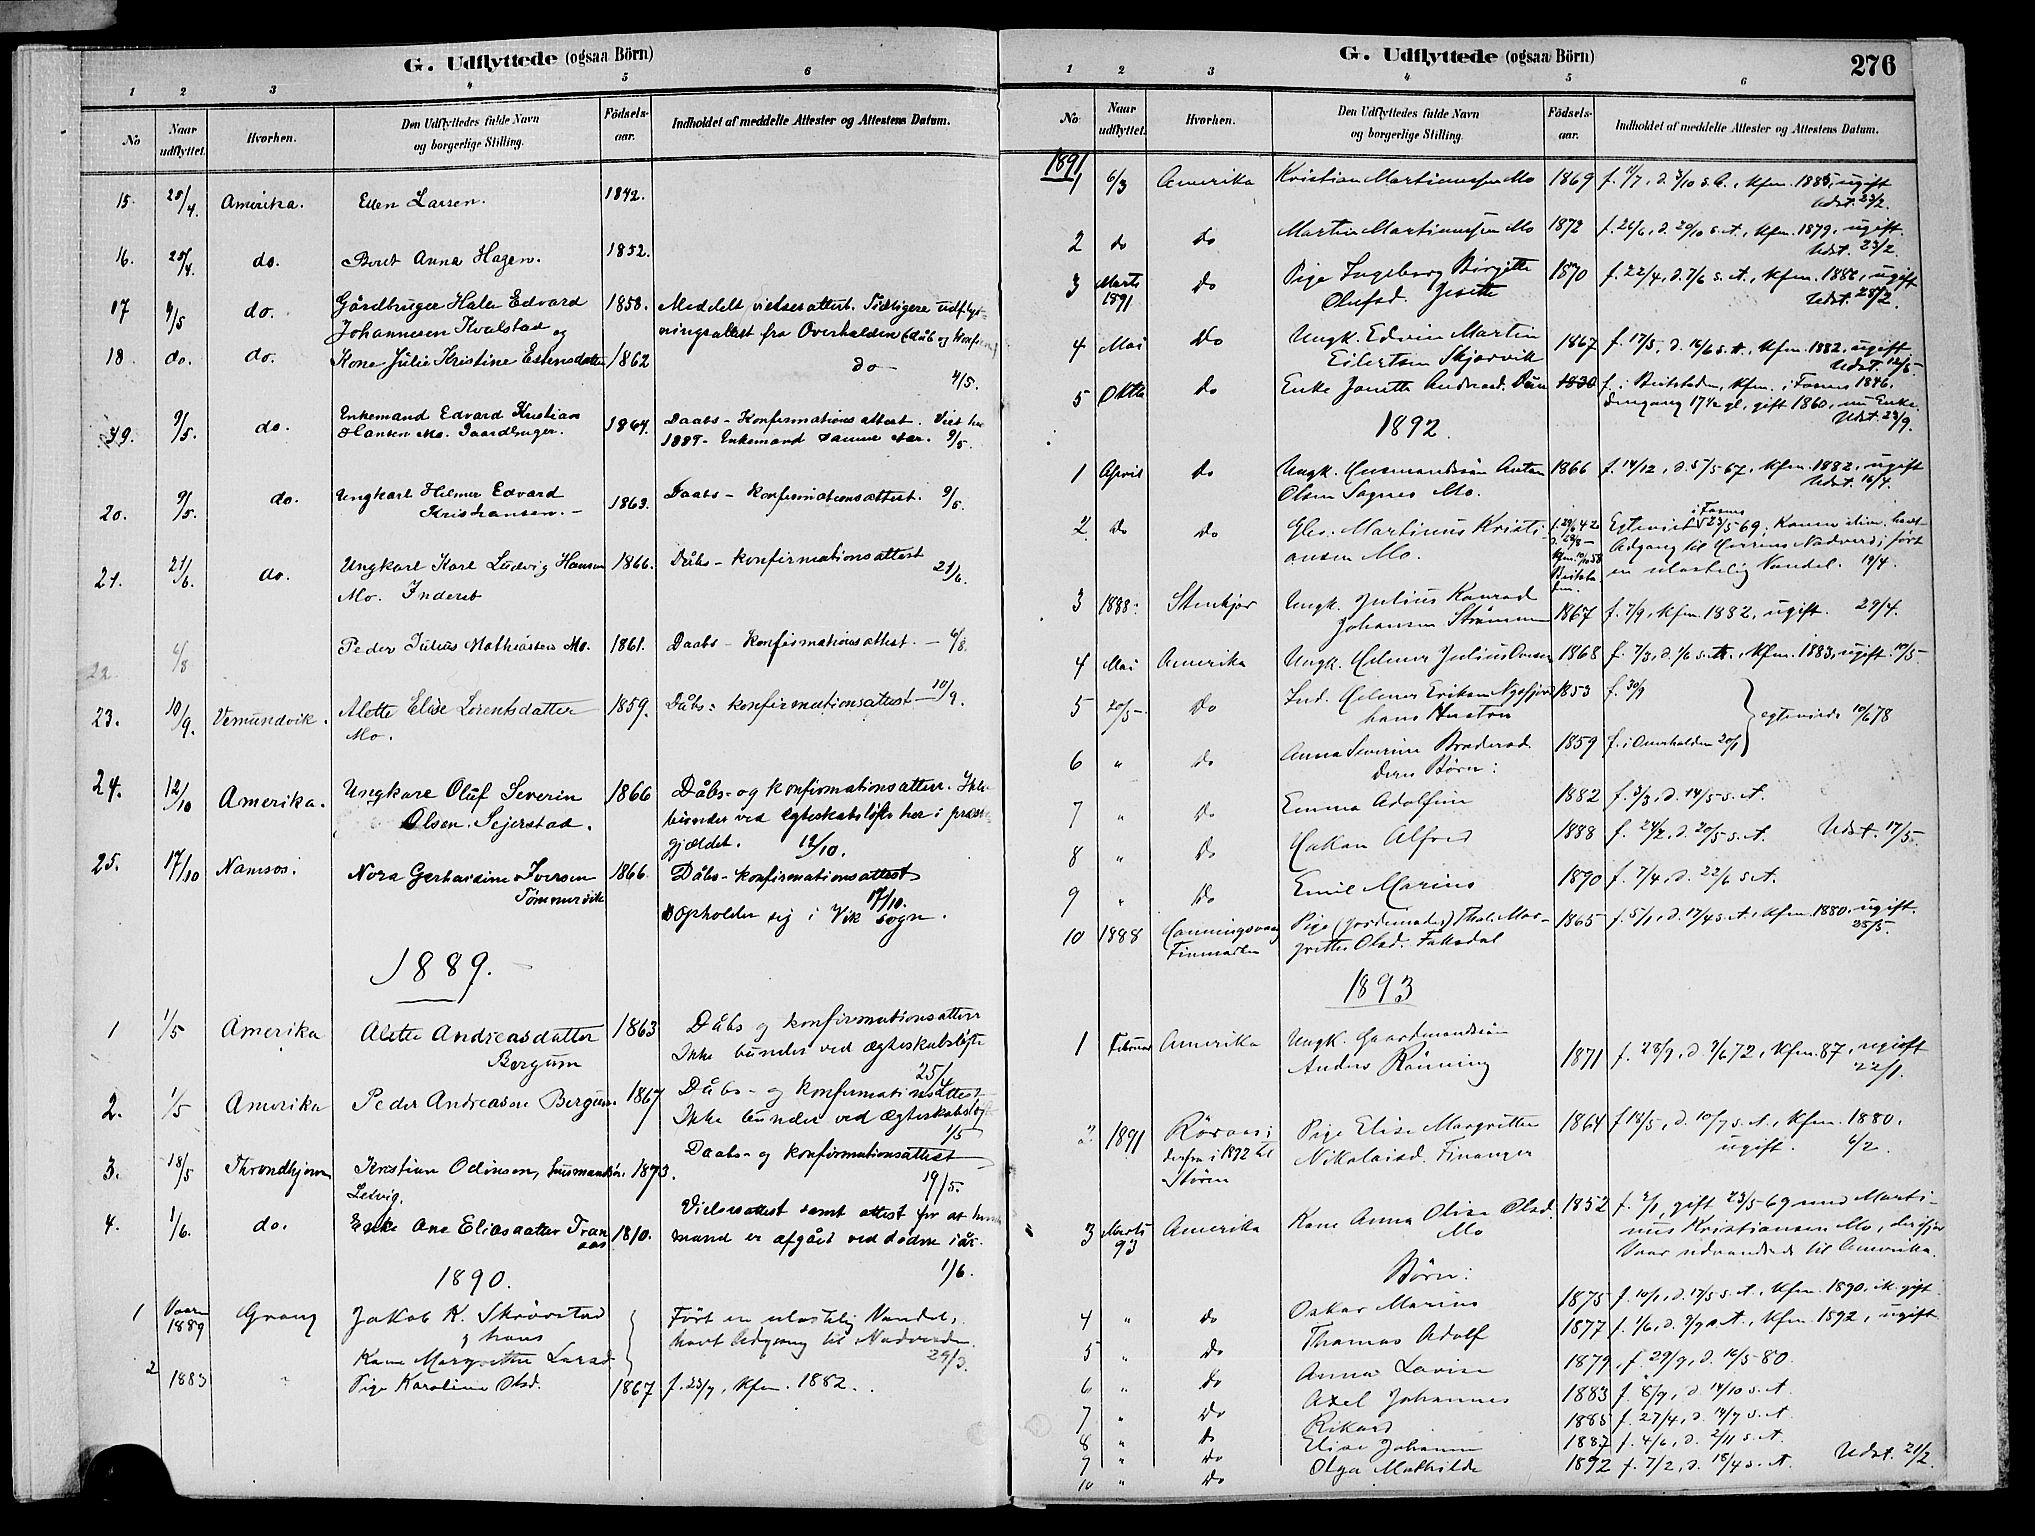 G. Udflyttede (ogsaa Börn)
1 2 3 4 5 6
No Naar udflyttet. Hvorhen. Den Udflyttedes fulde Navn og borgerlige Stilling. Födsels-aar. Indholdet af meddelte Attester og Attestens Datum.
15. 28/4. Amerika. Ellen Larsen. 1842.
16. 25/4. do. Beret Anna Hagen. 1852.
17 9/5 do. Gårdbruger Edvard 1858. Meddelt vielsesattest. Tidligere udflyt-
Johannesen Kvalstad og ningsattest fra Overhalden (dåb og konfirm)
18. do. do. Kone Julie Kristine Estensdatter 1862 do
4/5.
19. 9/5. do. Enkemand Edvard Kristian 1864. Daabs-Konfirmationsattest. Viet her
Hansen Mo. Gaardbruger. Enkemand samme Aar. 9/5.
20. 9/5. do. Ungkarl Hilmer Edvard 1863. Daabs-Konfirmationsattest. 9/5.
Kristiansen.
21. 21/6. do. Ungkarl Karl Ludvig Hansen 1866. Dåbs-Konfirmationsattest 21/6.
Mo. Inderet
22 6/8 Peder Julius Mathiassen Mo. 1861. Daabs-Konfirmationsattest. 6/8.
23. 10/9. Vemundvik. Alette Elise Lorentsdatter 1859. Dåbs: konfirmationsattest 10/9.
Mo.
24. 12/10 Amerika. Ungkarl Oluf Severin 1866 Dåbs- og konfirmationsattest. Ikke
Olsen. Sejerstad. bunden ved Egteskabsløfte her i præste-
gjældet. 12/10.
25. 17/10 Namsos. Nora Gerhardine Iversen 1866. Dåbs-konfirmationsattest
Tømmervik 17/10.
Opholder sig i Vik sogn.
1889.
1 1/5 Amerika Alette Andreasdatter 1863 Dåbs og konfirmationsattest
Bergum Ikke bunden ved Ægteskabsløfte
25/4
2. 1/5 Amerika Peder Andreasen Bergum. 1867 Dåbs- og konfirmationsattest
Ikke bunden ved Ægteskabsløfte
1/5
3. 18/5 Throndhjem Kristian Odinsen, husmandsön. 1873. Daabs- og konfirmationsattest
19/5.
4. 1/6. do. Enke Ane Eliasdatter Tran- 1810. Vielsesattest samt attest for at hendes
aas mand er afgået ved døden i år.
1/6.
1890.
1 Vaaren 1889 Grong Jakob K. Skrøvstad Ført en ulastelig Vandel,
og hans havt Adgang til Nadverden
Kone Margrethe Larsd. 29/3.
2 1883 " Pige Karoline Olsd. 1867 f. 23/7, Kfm. 1882.
G. Udflyttede (ogsaa Börn) 276
1 2 3 4 5 6
No Naar udflyttet. Hvorhen. Den Udflyttedes fulde Navn og borgerlige Stilling. Födsels-aar. Indholdet af meddelte Attester og Attestens Datum.
1891
1 6/3 Amerika Kristian Martinussen Mo 1869 f. 11/7, d. 3/10 s.A., Kfm. 1885, ugift
Udst. 23/2.
2 do do Martin Martinussen Mo 1872 f. 26/6, d. 29/10 s.A., Kfm. 1879, ugift.
Udst. 23/2.
3 Marts 1891 do Pige Ingeborg Birgitte 1870 f. 22/4, d. 7/6 s.A., Kfm. 1886, ugift
Olufsd. Udst. 28/2.
4 Mai do Ungk. Edvin Martin 1867 f. 17/5, d. 16/6 s.A., Kfm. 1882, ugift
Eilertsen Skjærvik Udst. 12/5
5 Oktb do Enke Janette Andreasd. 1830 f. i Beitstaden, Kfm. i Fosnes 1846.
gift 1860, nu Enke.
Udst. 23/9.
1892.
1 April do Ungk. Husmandssön Anton 1866 f. 14/12, d. 5/5 67, Kfm. 1882, ugift
Olsen Sagnes Mo. Udst. 16/4.
2. do do Martinus Kristi- Egteviet i Fosnes 23/5 69. Kommunion. havt
ansen Mo. Adgang til Herrens Nadverd, ført
en ulastelig Vandel. 19/4.
3 1888. Stenkjær Ungk. Julius Konrad 1867 f. 7/9, Kfm. 1882, ugift. 29/4.
Johansen Strømmen
4 Mai Amerika Ungk. Helmer Julius 1868 f. 7/3, d. 1/6 s.A., Kfm. 1883, ugift. 10/5.
5 20/5 do Ind. Helmer Eriksen 1853 f. 30/9
hans Hustru egteviede 10/6 78
6 " do Anna Severine 1859 f. i Overhalden 20/1
deres Børn:
7 " do Emma Adolfine 1882 f. 3/3, d. 14/5 s.A.
8 " do Hakon Alfred 1888 f. 24/2, d. 20/5 s.A. Udst. 17/5.
9 " do Emil Marius 1890 f. 7/4, d. 22/6 s.A.
10 1888 Honningsvaag Pige (Jordemoder) Mar- 1865 f. 5/1, d. 17/4 s.A., Kfm. 1880. ugift.
Finmarken grethe Olsd. Faksdal 28/5.
1893
1 Februar Amerika Ungk. Gaardmandssön
Anders Rönning 1871 f. 28/9, d. 2/6 72, Kfm. 87, ugift
22/1.
2. 1891 Röraas; Pige Elise Margrethe 1864 f 13/5, d. 10/7 s.A., Kfm. 1880.
derfra i 1892 til Nikolaisd. Finanger ugift. 6/2.
Stören
3 Marts 93 Amerika Kone Anna Olise Olsd. 1852 f. 2/1, gift 23/5 69 med Marti-
Mo nus Kristiansen Mo, der ifjor
Vaar udvandrede til Amerika.
Børn:
4 " do Oskar Marius 1875 f. 10/1, d. 17/5 s.A., Kfm. 1890. ugift.
5 " do Thomas Adolf 1877 f. 1/6, d. 2/9 s.A., Kfm. 1892, ugift
6 " do Anna Lovise 1879, f. 29/9, d. 16/5 80.
7 " do Axel Johannes 1883 f. 8/9, d. 14/10 s.A.
8 " do Rikard 1885 f. 27/4, d. 14/7 s.A.
9 " do Elise Johanne 1887 f. 4/6, d. 2/11 s.A.
10 " do Olga Mathilde 1892 f. 7/2, d. 18/4 s.A. Udst. 21/2.